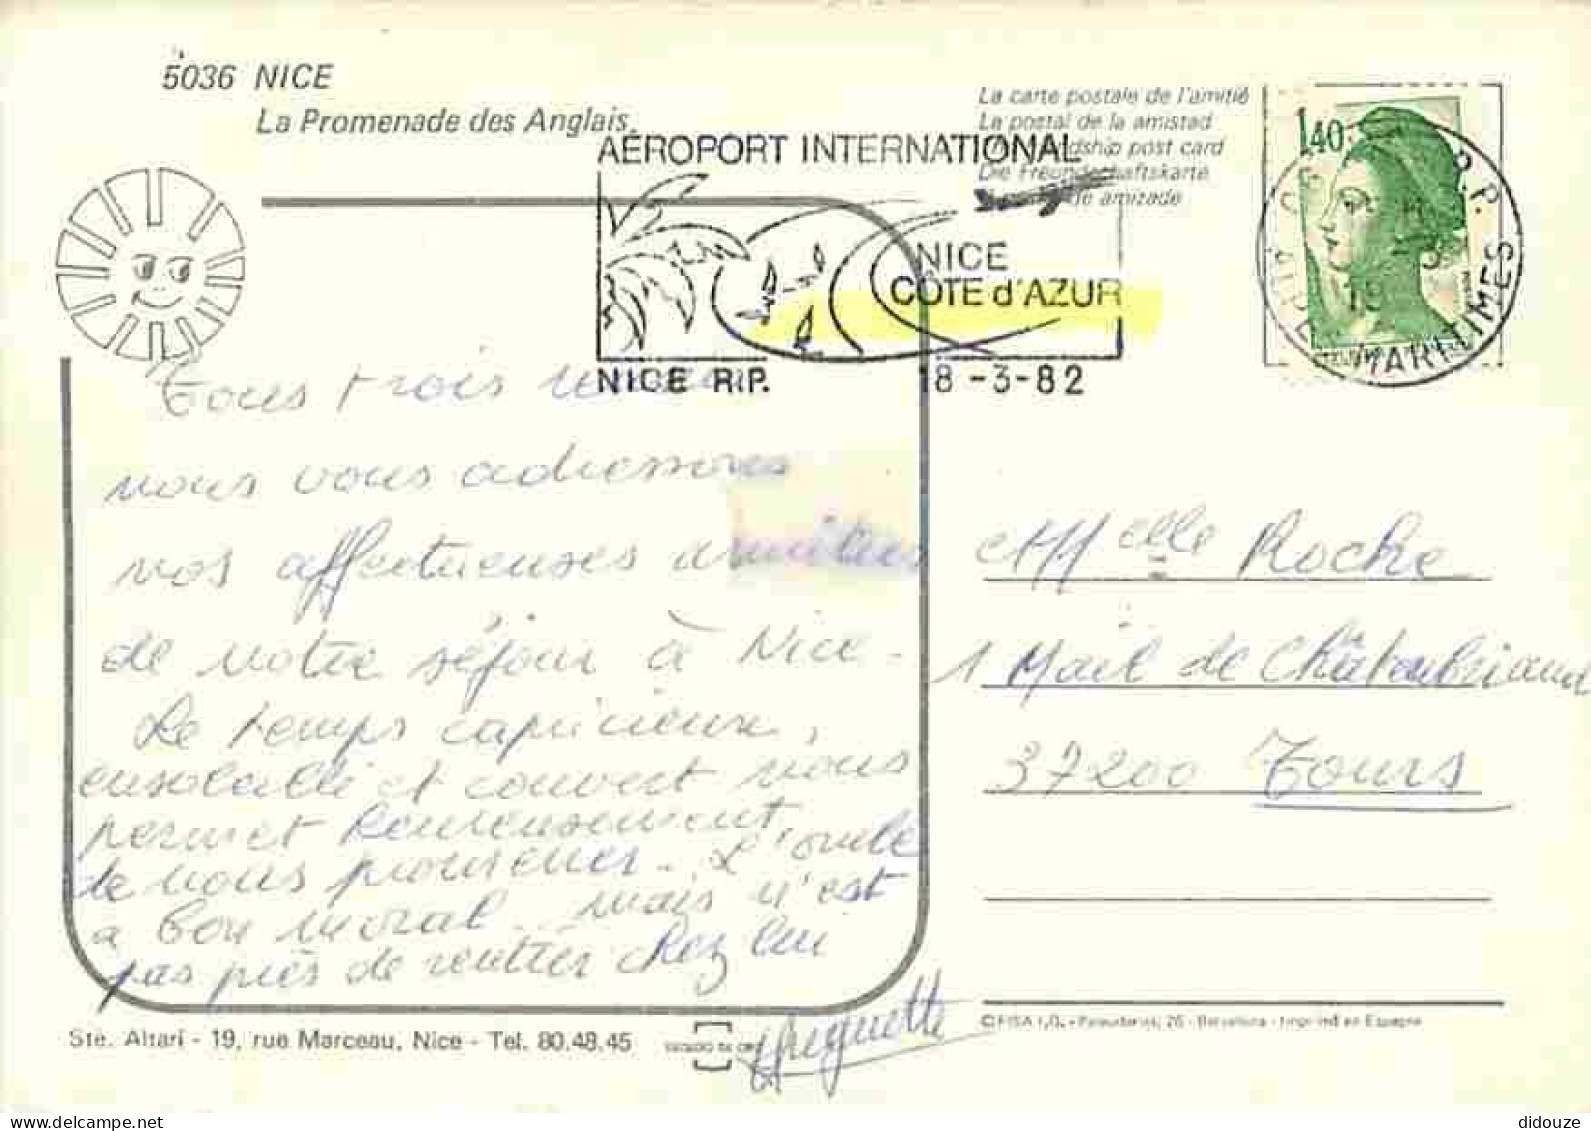 5036 NICE
La Promenade des Anglais
La carte postale de l'amitié
La postal de la amistad
post card
Die Freundschaftskarte
de amizade
AÉROPORT INTERNATIONAL
NICE
CÔTE d'AZUR
NICE R.P.
18 -3-82
1,40
R.P.
MARITIMES
Tous trois
nous vous adressons
nos affectueuses amitiés
de notre séjour à Nice.
Le temps capricieux,
ensoleillé et couvert nous
permet heureusement
de nous promener.. L'oncle
a bon moral... mais n'est
pas près de rentrer chez lui
Huguette
Melle Roche
1 Mail de Châteaubriand
37200 Tours
Sté. Altari - 19, rue Marceau, Nice - Tel. 80.48.45
©FISA I.G. - Palaudarias, 26 - Barcelona - Imprimé en Espagne
didouze